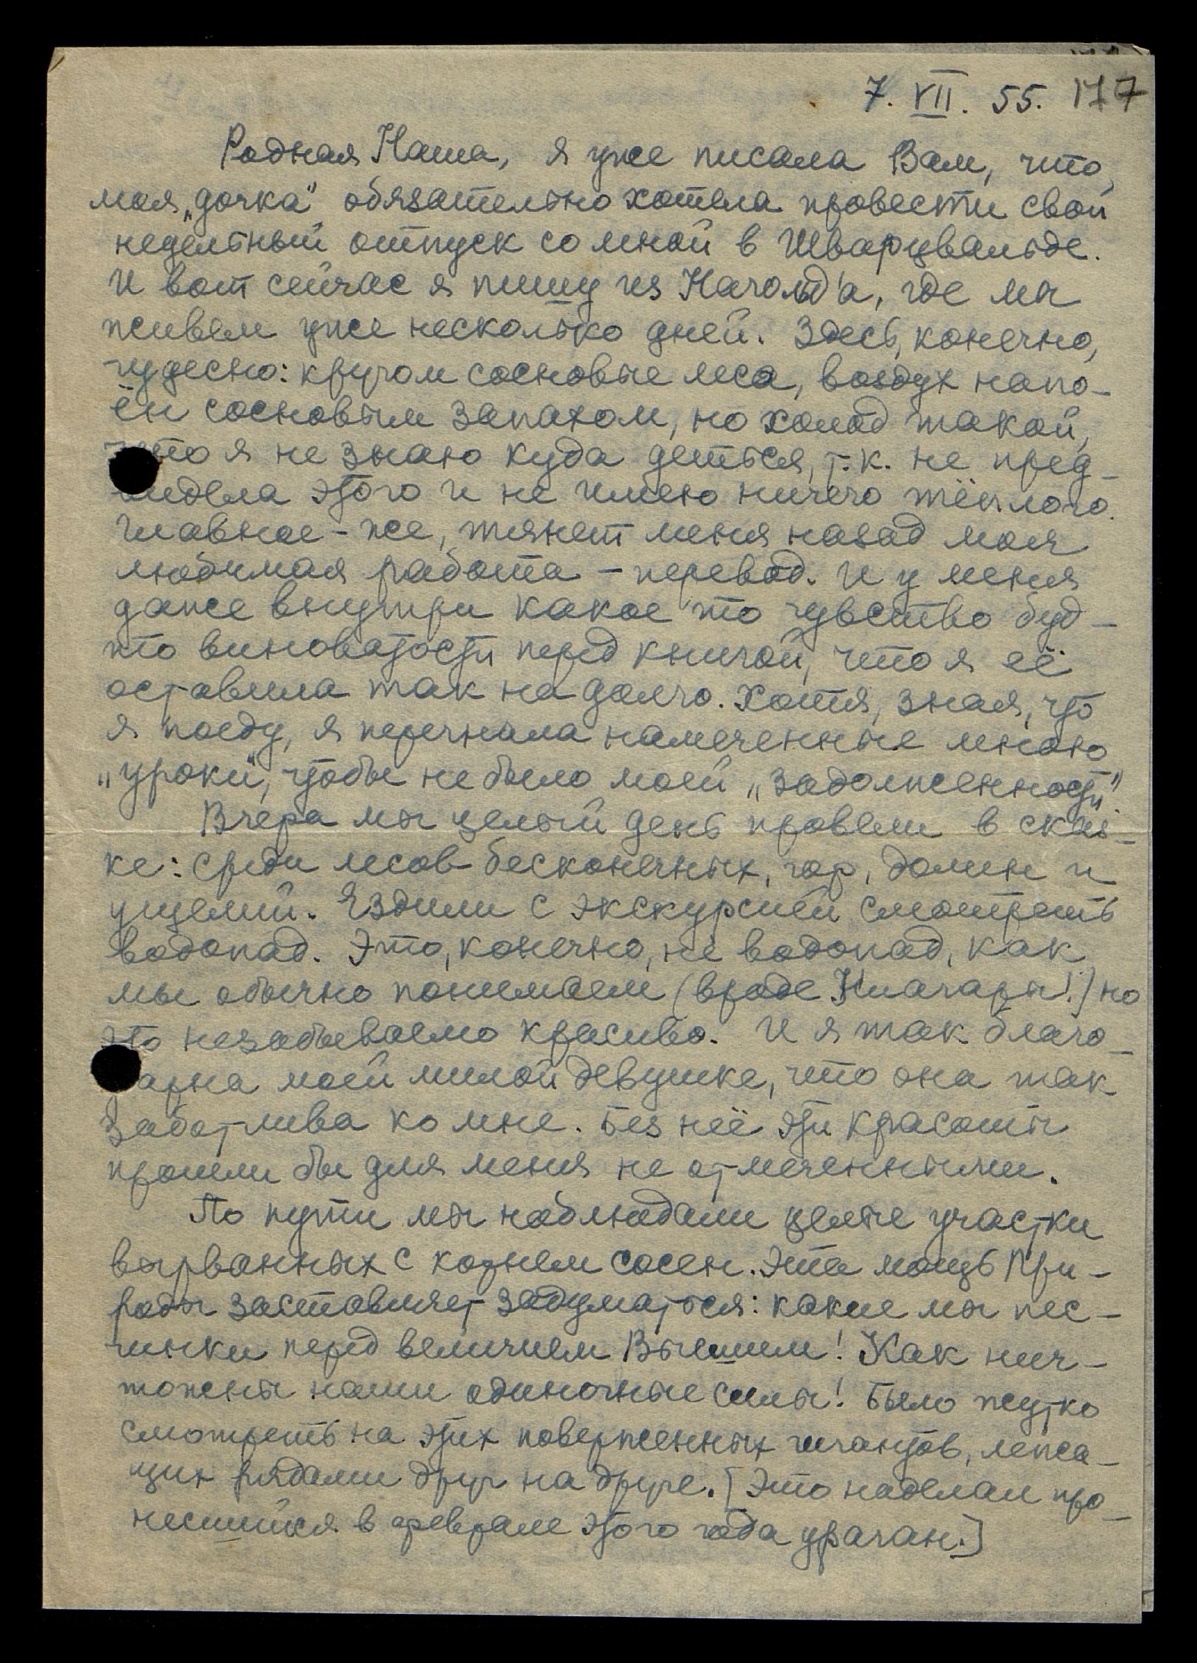 7. VII. 55. 177
Родная Наша, я уже писала Вам, что,
моя „дочка" обязательно хотела провести свой
недельный отпуск со мной в Шварцвальде.
И вот сейчас я пишу из Нагольд'а, где мы
живем уже несколько дней. Здесь, конечно,
чудесно: кругом сосновые леса, воздух напо-
ён сосновым запахом, но холод такой,
что я не знаю куда деться, т.к. не пред-
видела этого и не имею ничего тёплого.
Главное-же, тянет меня назад моя
любимая работа – перевод. И у меня
даже внутри какое то чувство буд-
то виноватости перед книгой, что я её
оставила так на долго. Хотя, зная, что
я поеду, я перегнала намеченные мною
„уроки", чтобы не было моей „задолженности".
Вчера мы целый день провели в сказ-
ке: среди лесов бесконечных, гор, долин и
ущелий. Ездили с экскурсией смотреть
водопад. Это, конечно, не водопад, как
мы обычно понимаем (вроде Ниагары!) но
это незабываемо красиво. И я так благо-
дарна моей милой девушке, что она так
заботлива ко мне. Без неё эти красоты
прошли бы для меня не отмеченными.
По пути мы наблюдали целые участки
вырванных с корнем сосен. Эта мощь При-
роды заставляет задуматься: какие мы пес-
чинки перед величием Высшим! Как нич-
тожны наши одиночные силы! Было жутко
смотреть на этих поверженных гигантов, лежа-
щих рядами друг на друге. [Это наделал про-
несшийся в феврале этого года ураган.]